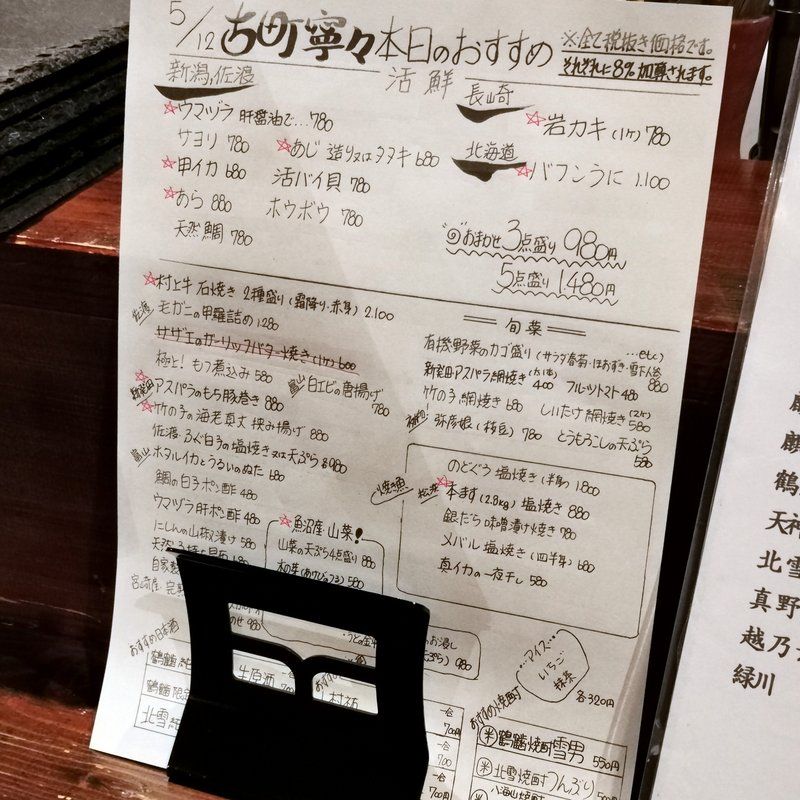 5/12 古町寧々 本日のおすすめ
※全て税抜き価格です。
それぞれに8%加算されます。
活鮮
新潟,佐渡
☆ウマヅラ 肝醤油で…780
サヨリ 780
☆あじ 造り又はタタキ 680
☆甲イカ 680
活バイ貝 780
☆あら 880
ホウボウ 780
天然鯛 780
長崎
☆岩カキ(1ケ) 780
北海道
☆バフンうに 1.100
おまかせ3点盛り 980円
5点盛り 1.480円
☆村上牛 石焼き 2種盛り(霜降り・赤身) 2.100
佐渡 モガニの甲羅詰め 1.280
サザエのガーリックバター焼き(1ケ) 600
極上! もつ煮込み 580
富山 白エビの唐揚げ 780
☆新発田 アスパラのもち豚巻き 880
☆竹の子の海老真丈 挟み揚げ 880
佐渡 ふぐ白子の塩焼き又は天ぷら 各980
富山 ホタルイカとうるいのぬた 680
鯛の白子ポン酢 480
ウマヅラ肝ポン酢 480
にしんの山椒漬け 580
自家製
宮崎産 完熟
旬菜
有機野菜のカゴ盛り(サラダ春菊・ほおずき・雪下人参 …etc) 880
新発田アスパラ網焼き 400
フルーツトマト 480
竹の子網焼き 680
しいたけ網焼き(2ケ) 580
弥彦娘(枝豆) 780
とうもろこしの天ぷら 580
焼き魚
のどぐろ 塩焼き(半身) 1.800
☆本ます(2.8kg) 塩焼き 880
銀だら 味噌漬け焼き 780
メバル 塩焼き(四半身) 680
真イカの一夜干し 580
☆魚沼産 山菜!
山菜の天ぷら4点盛り 880
木の芽(あけびのつる) 580
のせ 980
お浸し
980
…アイス…
いちご
抹茶
各320円
おすすめ日本酒
鶴齢
鶴齢
北雪
生原酒
700
村祐
一合 700円
一合 700
一合 700円
おすすめ焼酎
㊍鶴齢焼酎 雪男 550円
㊍北雪焼酎 つんぶり
八海山焼酎
鶴
天神
北雪
真野
越乃
緑川